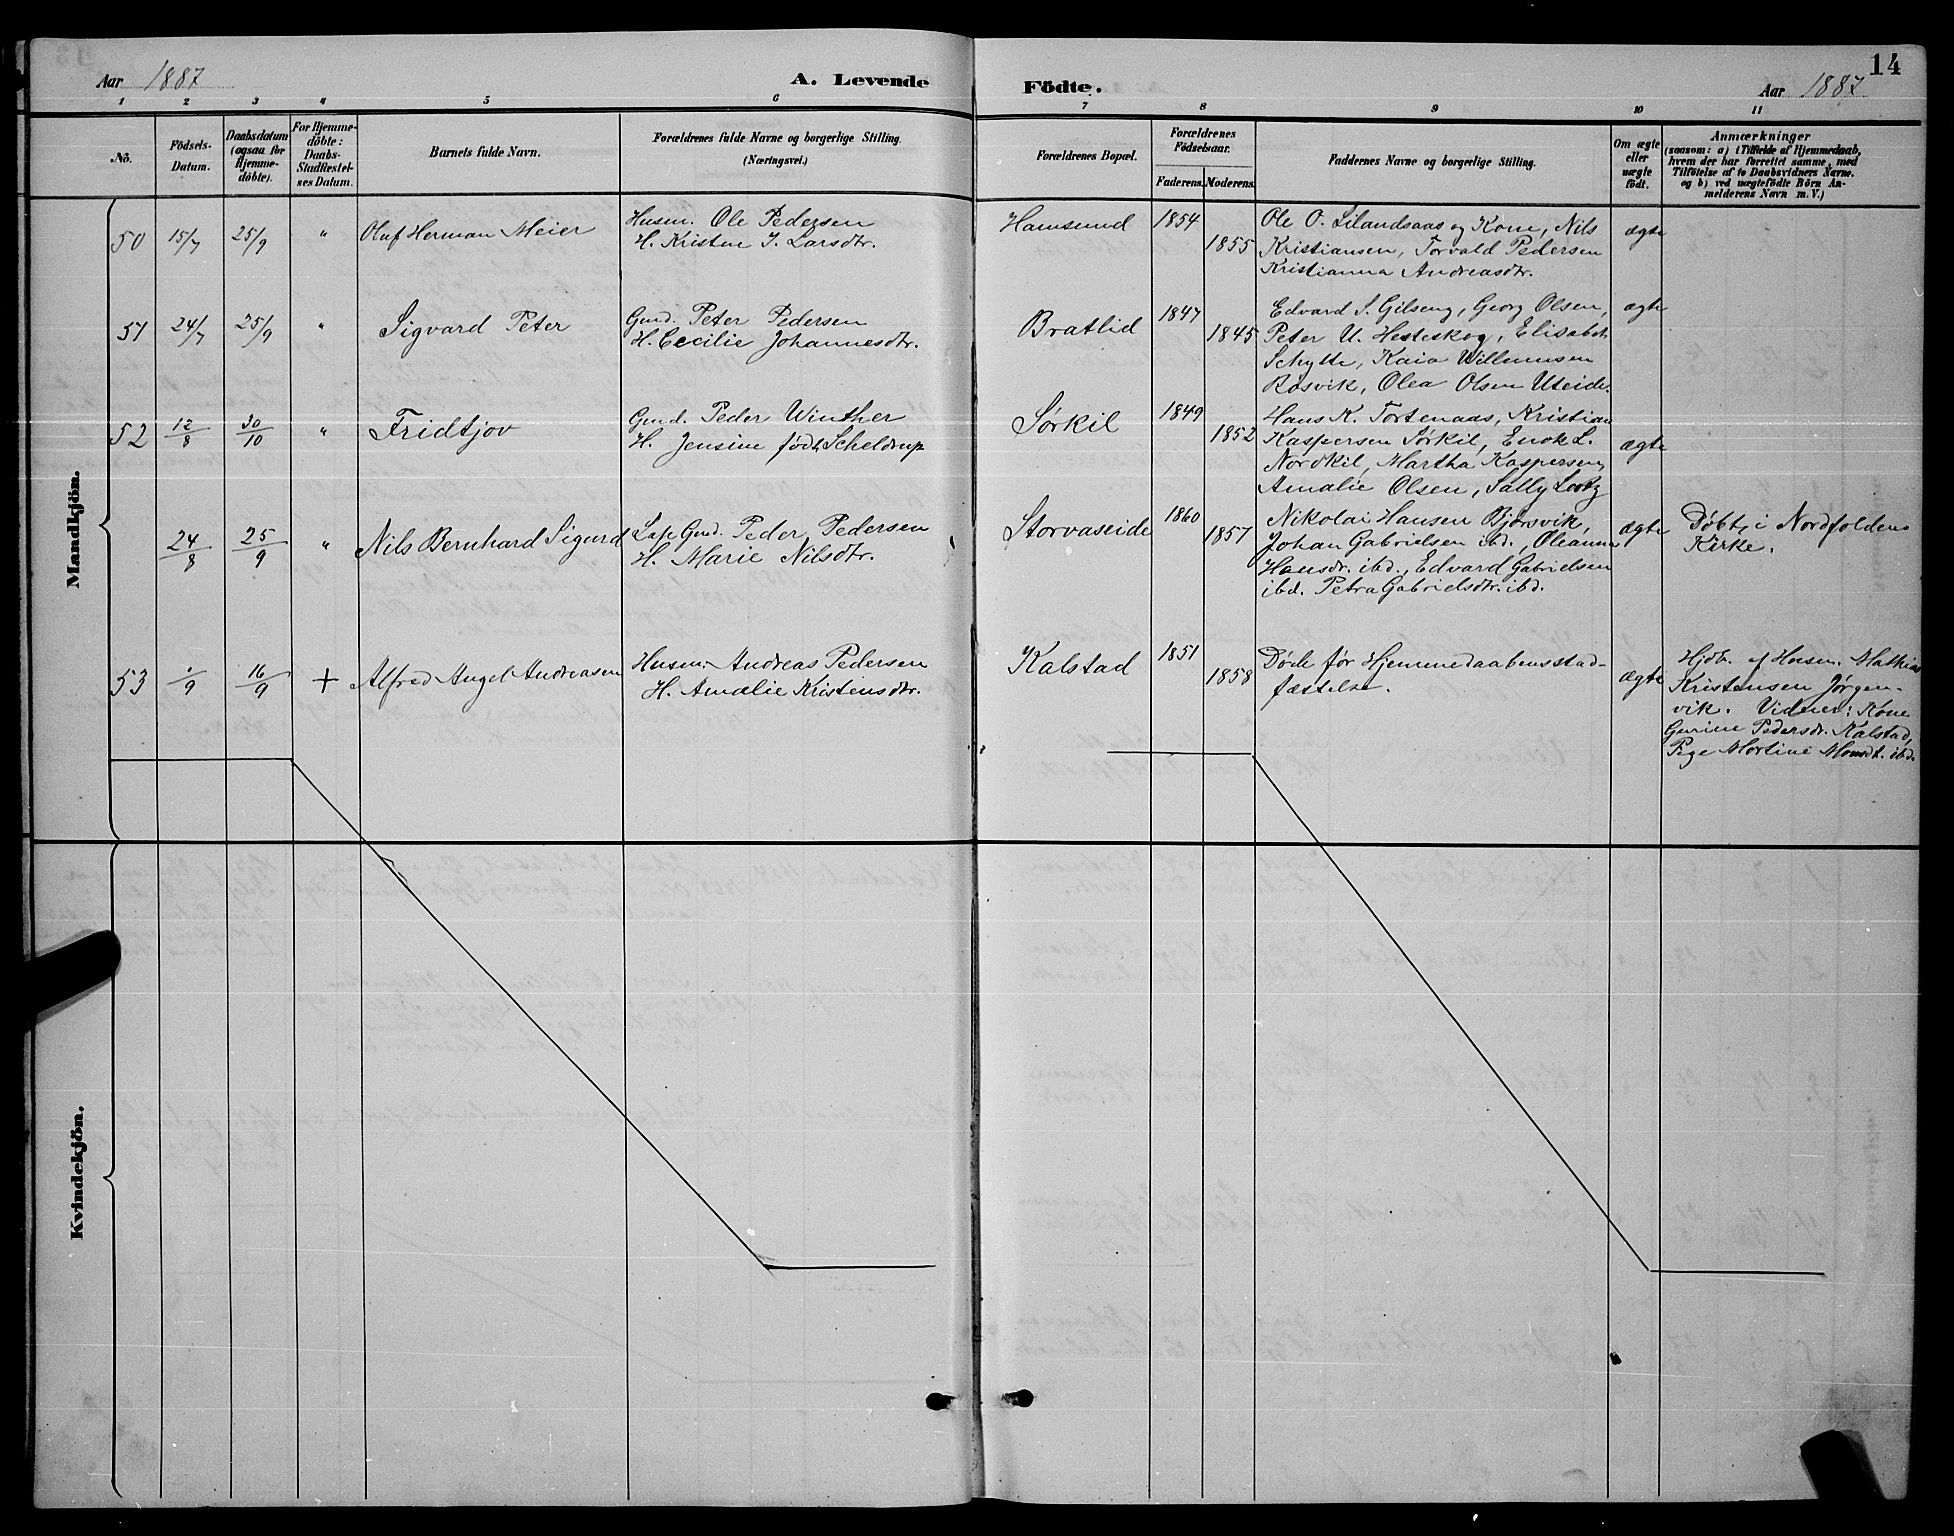 14
Aar 1887 A. Levende Födte. Aar 1887
1 2 3 4 5 6 7 8 9 10 11
No.
Födsels-
Datum.
Daabsdatum
(ogsaa for
Hjemme-
döbte).
For Hjemme-
döbte:
Daabs-
Stadfæstel-
ses Datum.
Barnets fulde Navn.
Forældrenes fulde Navne og borgerlige Stilling.
(Næringsvei.)
Forældrenes Bopæl.
Forældrenes
Födselsaar.
Faderens. Moderens.
Faddernes Navne og borgerlige Stilling.
Om ægte
eller
uægte
födt.
Anmærkninger
(saasom: a) i Tilfælde af Hjemmedaab,
hvem der har forrettet samme, med
Tilföielse af to Daabsvidners Navne.
og b) ved uægtefödte Börn An-
melderens Navn m. V.)
Mandkjön.
50 15/7 25/9 " Oluf Herman Meier
Husm. Ole Pedersen
H. Kristine J. Larsdtr.
Hamsund 1854 1855
Ole O. Lilandsaas og Kone, Nils
Kristiansen, Torvald Pedersen
Kristianna Andreasdtr.
ægte
51 24/7 25/9 " Sigvard Peter
Gmd. Peter Pedersen
H. Cecilie Johannesdtr.
Bratlid 1847 1845
Edvard S. Gilseng, Georg Olsen,
Peter U. Hesteskog, Elisabet
Schytte, Kaia Willumsen
Røsvik, Olea Olsen Uteide.
ægte
52 12/8 30/10 " Fridtjov
Gmd. Peder Winther
H. Jensine født Scheldrup
Sørkil 1849 1852
Hans K. Tortenaas, Kristian
Kaspersen Sørkil, Enok L.
Nordkil, Martha Kaspersen,
Amalie Olsen, Sally Lootz
ægte
24/8 25/9 " Nils Bernhard Sigurd
Lap Gmd. Peder Pedersen
H. Marie Nilsdtr.
Storvaseide 1860 1857
Nikolai Hansen Bjørsvik,
Johan Gabrielsen ibd., Oleanna
Hansdr. ibd., Edvard Gabrielsen
ibd. Petra Gabrielsdtr. ibd.
ægte
Døbt i Nordfoldens
Kirke.
53 1/9 16/9 + Alfred Angel Andreasen
Husm. Andreas Pedersen
H. Amalie Kristensdtr.
Kalstad 1851 1858
Døde før Hjemmedaabensstad-
fæstelse.
ægte
Hjdb. af Husm. Mathias
Kristensen Jørgen-
vik. Vidner: Kone
Gurine Pedersdtr. Kalstad,
Pige Martine Monsdt. ibd.
Kvindekjön.